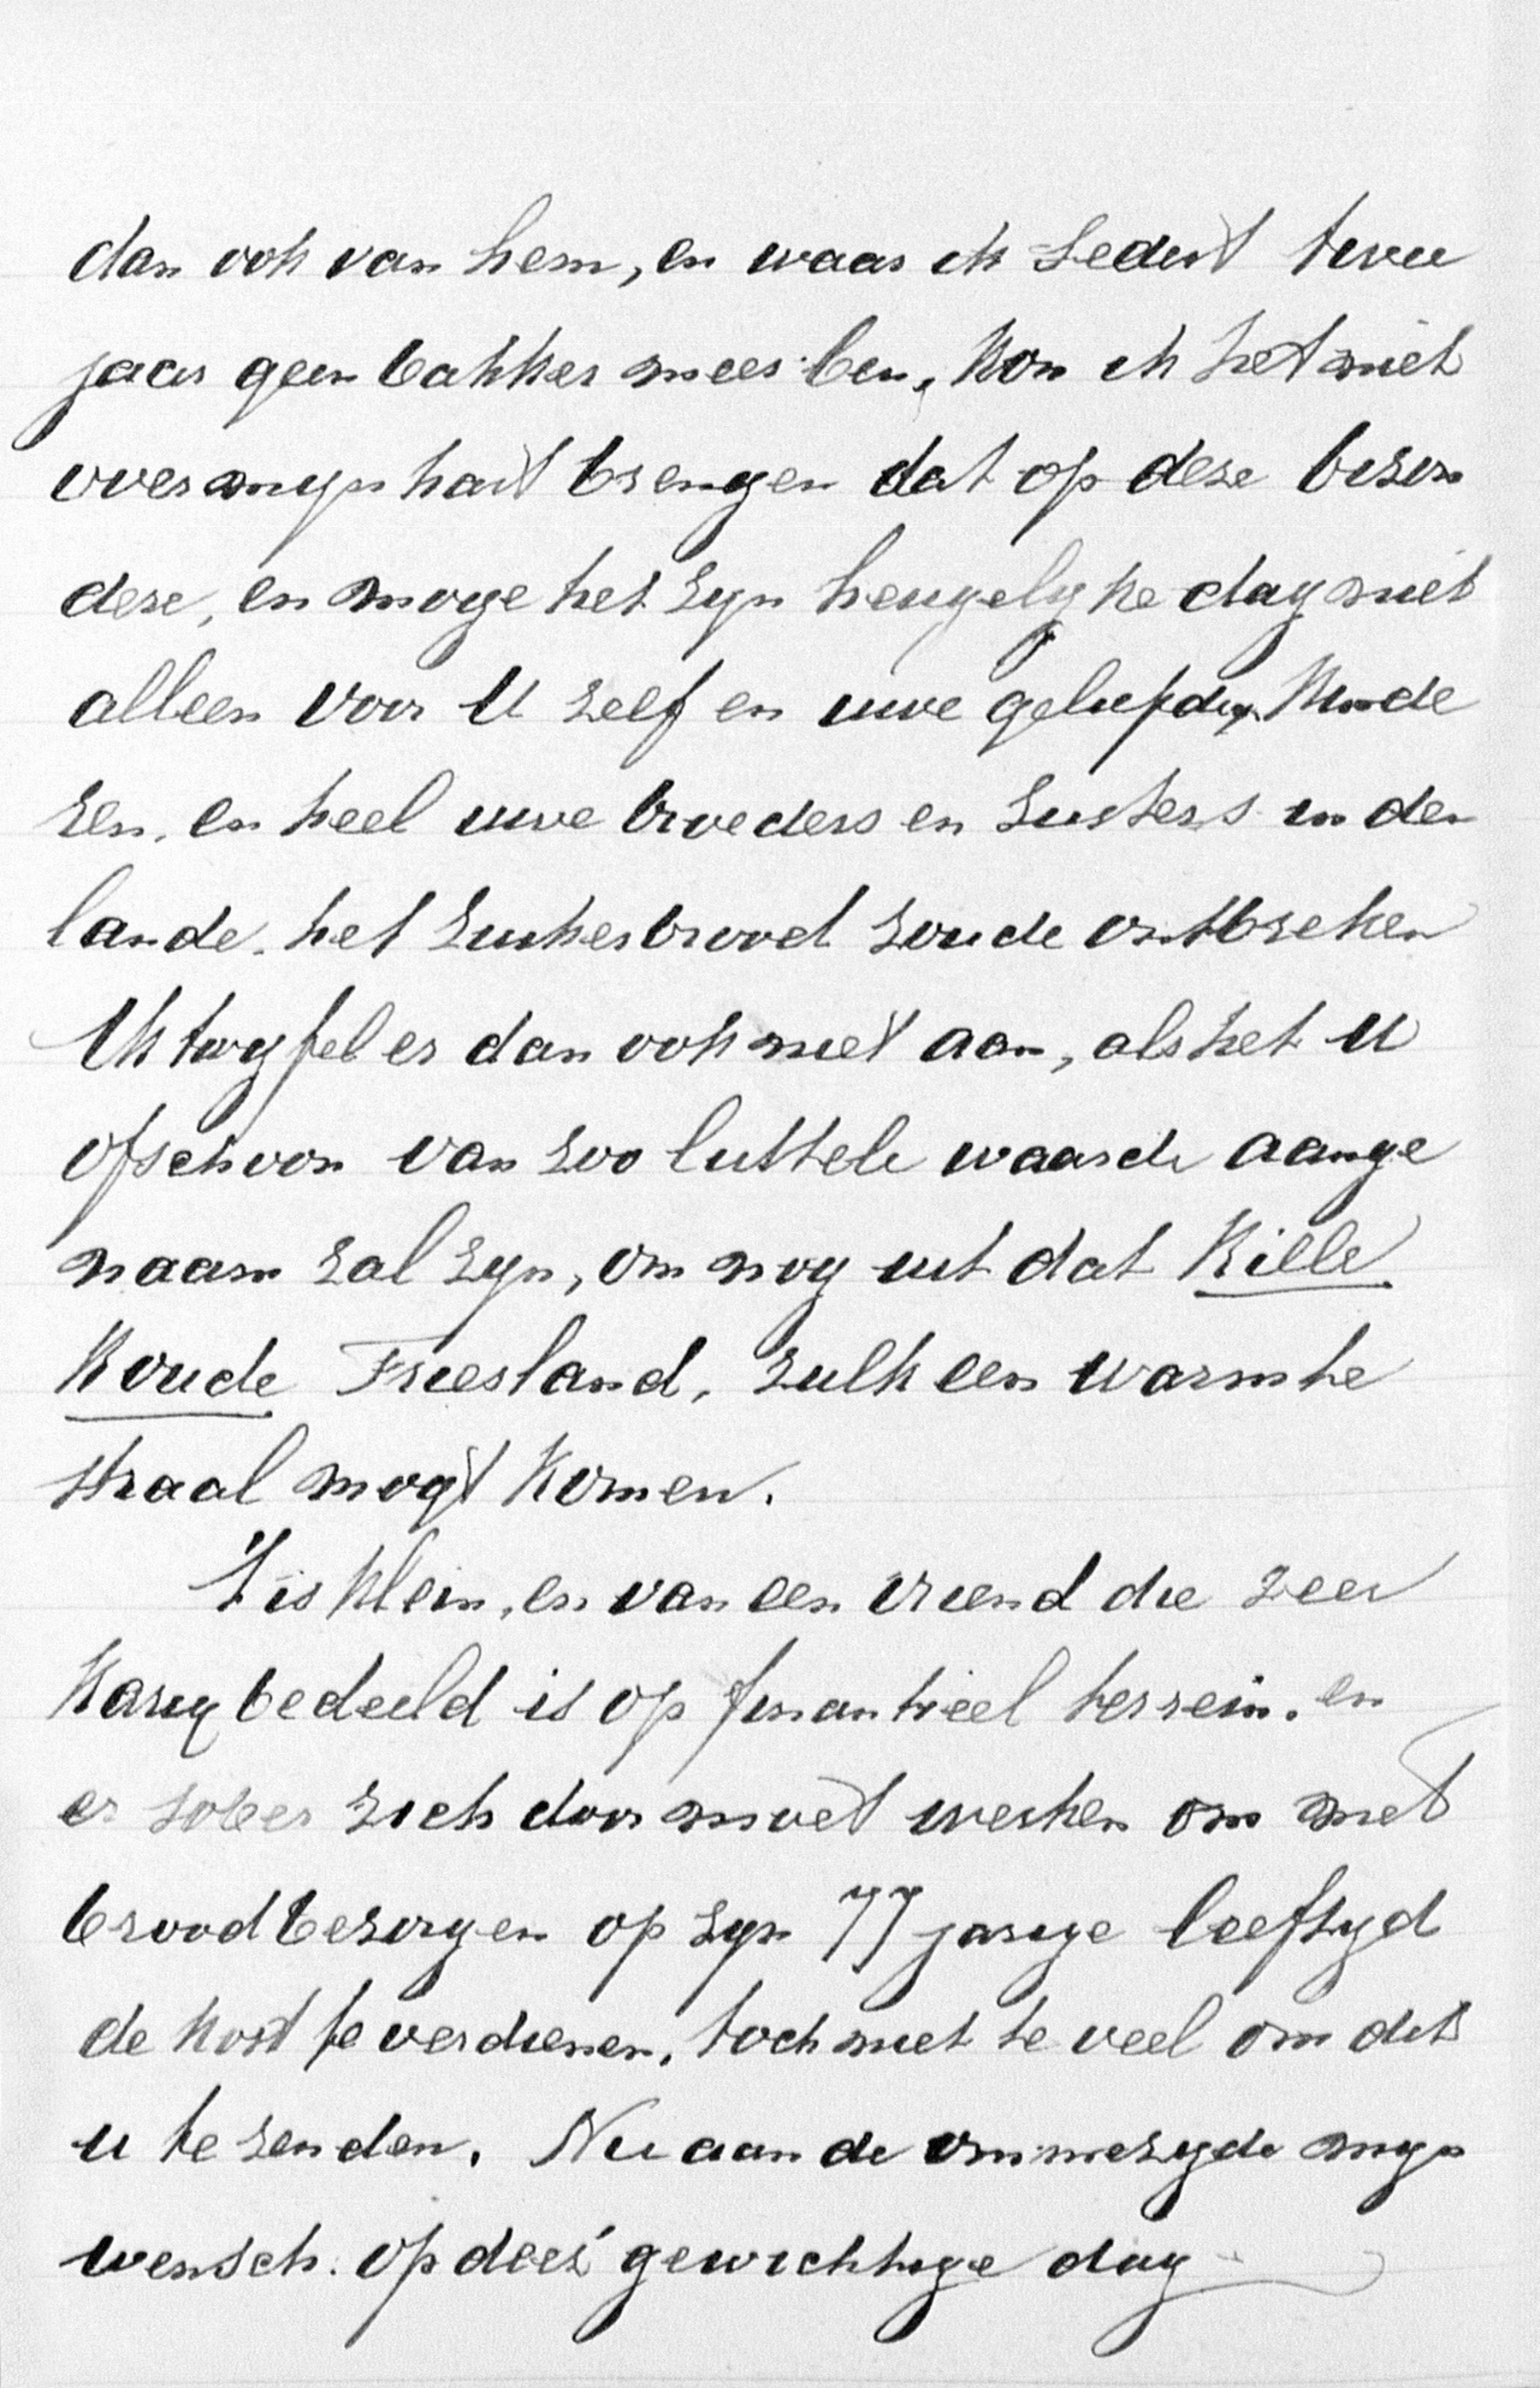 dan ook van hem, en waar ik sedert twee
jaar geen bakker meer ben, kon ik het niet
over myn hart brengen dat op deze bizon
dere, en moge het zyn heugelyke dag niet
alleen voor U zelf en uwe geliefden kinde
ren, en heel uwe broeders en zusters in den
lande, het suikerbrood zoude ontbreken
Ik twyfel er dan ook niet aan, als het U
ofschoon van zoo luttele waarde aange
naam zal zyn, om nog uit dat kille
koude Friesland, zulk een warmte
straal mogt komen.
't is klein, en van een vriend die zeer
karig bedeeld is op finantieel terrein. en
er sober zich door moet werken om met
broodbezorgen op zyn 77 jarige leeftyd
de kost te verdienen, toch niet te veel om dit
u te zenden. Nu aan de ommezyde myn
wensch. op dees' gewichtige dag